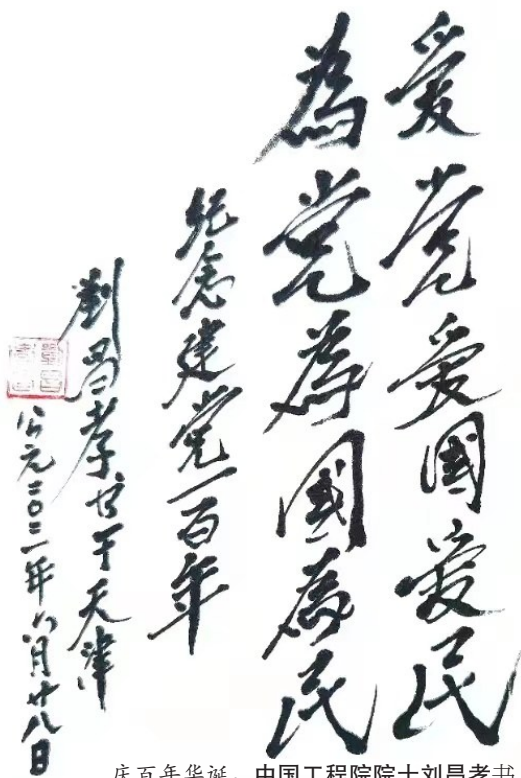 爱党爱國爱民
為党為國為民
纪念建党一百年
劉昌孝书于天津
公元二〇二一年六月廿八日
庆百年华诞，中国工程院院士刘昌孝书